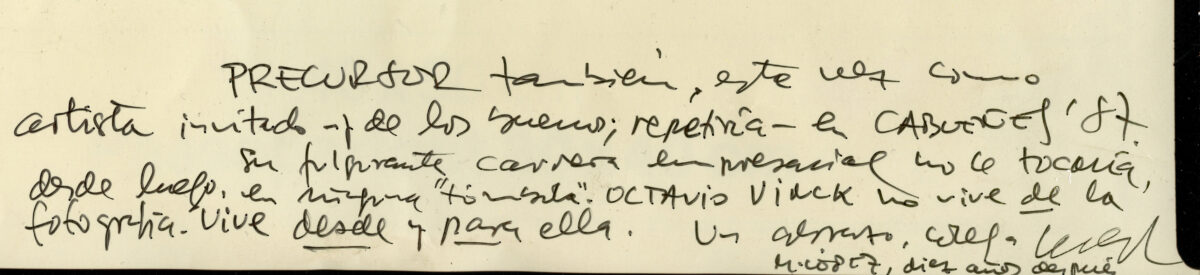 PRECURSOR también, este vez como
artista invitado -y de los buenos; repetiría- en CABUEÑES '87.
Su fulgurante carrera empresarial no le tocaría,
desde luego, en ninguna "tómbola". OCTAVIO VINCK no vive de la
fotografía. Vive desde y para ella. Un abrazo, colega
M. LÓPEZ, diez años después